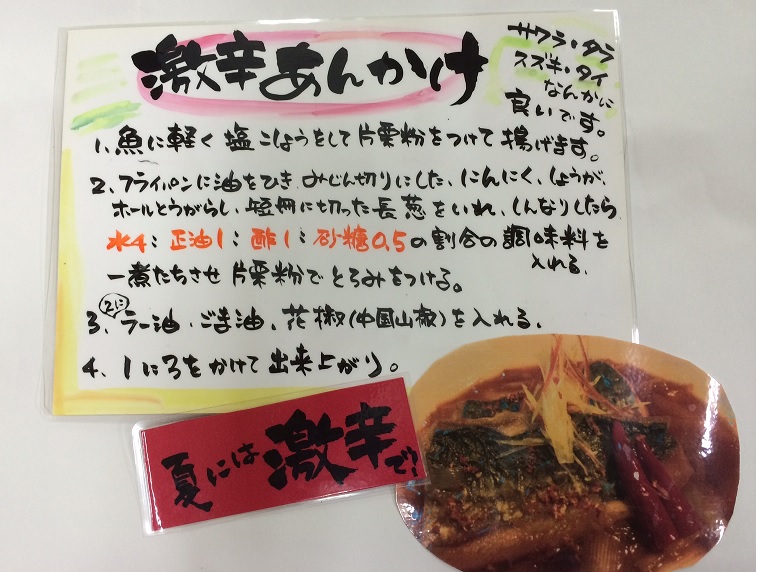 激辛あんかけ
サワラ・タラ
スズキ・タイ
なんかに
良いです。
1、魚に軽く塩こしょうをして片栗粉をつけて揚げます。
2、フライパンに油をひき みじん切りにした、にんにく、しょうが、
ホールとうがらし、短冊に切った長葱をいれ、しんなりしたら
水4:正油1:酢1:砂糖0.5の割合の調味料を
入れる、
一煮たちさせ 片栗粉でとろみをつける。
2に
3、ラー油、ごま油、花椒(中国山椒)を入れる、
4、1に3をかけて出来上がり。
夏には激辛で!